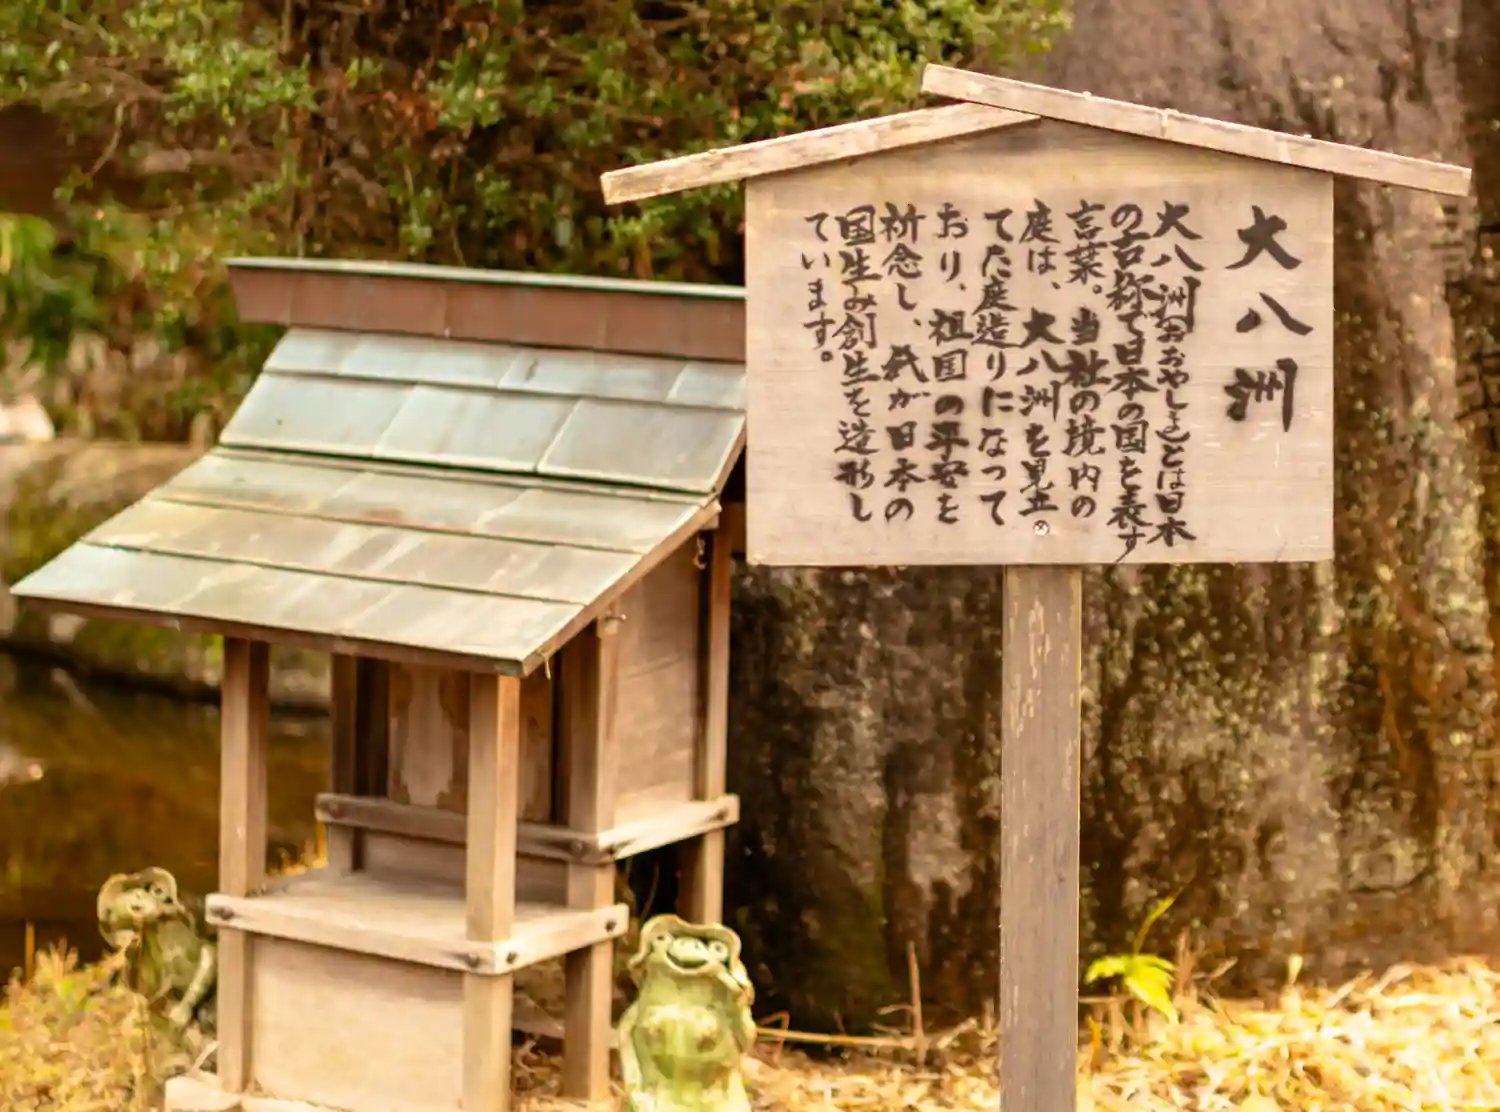 大八洲
大八洲(おおやしま)とは日本
の古称で日本の国を表す
言葉。当社の境内の
庭は、大八洲を見立
てた庭造りになって
おり、祖国の平安を
祈念し、我が日本の
国生み創生を造形し
ています。